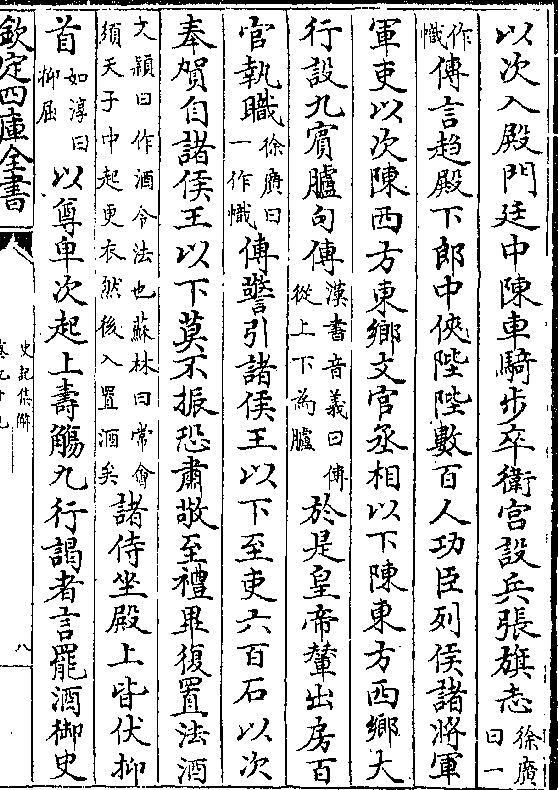 以次入殿門廷中陳車騎步卒衛宮設兵張旗志徐廣曰一
作幟傳言趨殿下郎中俠陛陛數百人功臣列侯諸將軍
軍吏以次陳西方東鄉文官丞相以下陳東方西鄉大
行設九賓臚句傳漢書音義曰傳從上下為臚於是皇帝輦出房百
官執職徐廣曰一作幟傳警引諸侯王以下至吏六百石以次
奉賀自諸侯王以下莫不振恐肅敬至禮畢復置法酒
文穎曰作酒令法也蘇林曰常會須天子中起更衣然後入置酒矣諸侍坐殿上皆伏抑
首如淳曰抑屈以尊卑次起上壽觴九行謁者言罷酒御史
欽定四庫全書
史記集解
卷九十九
八